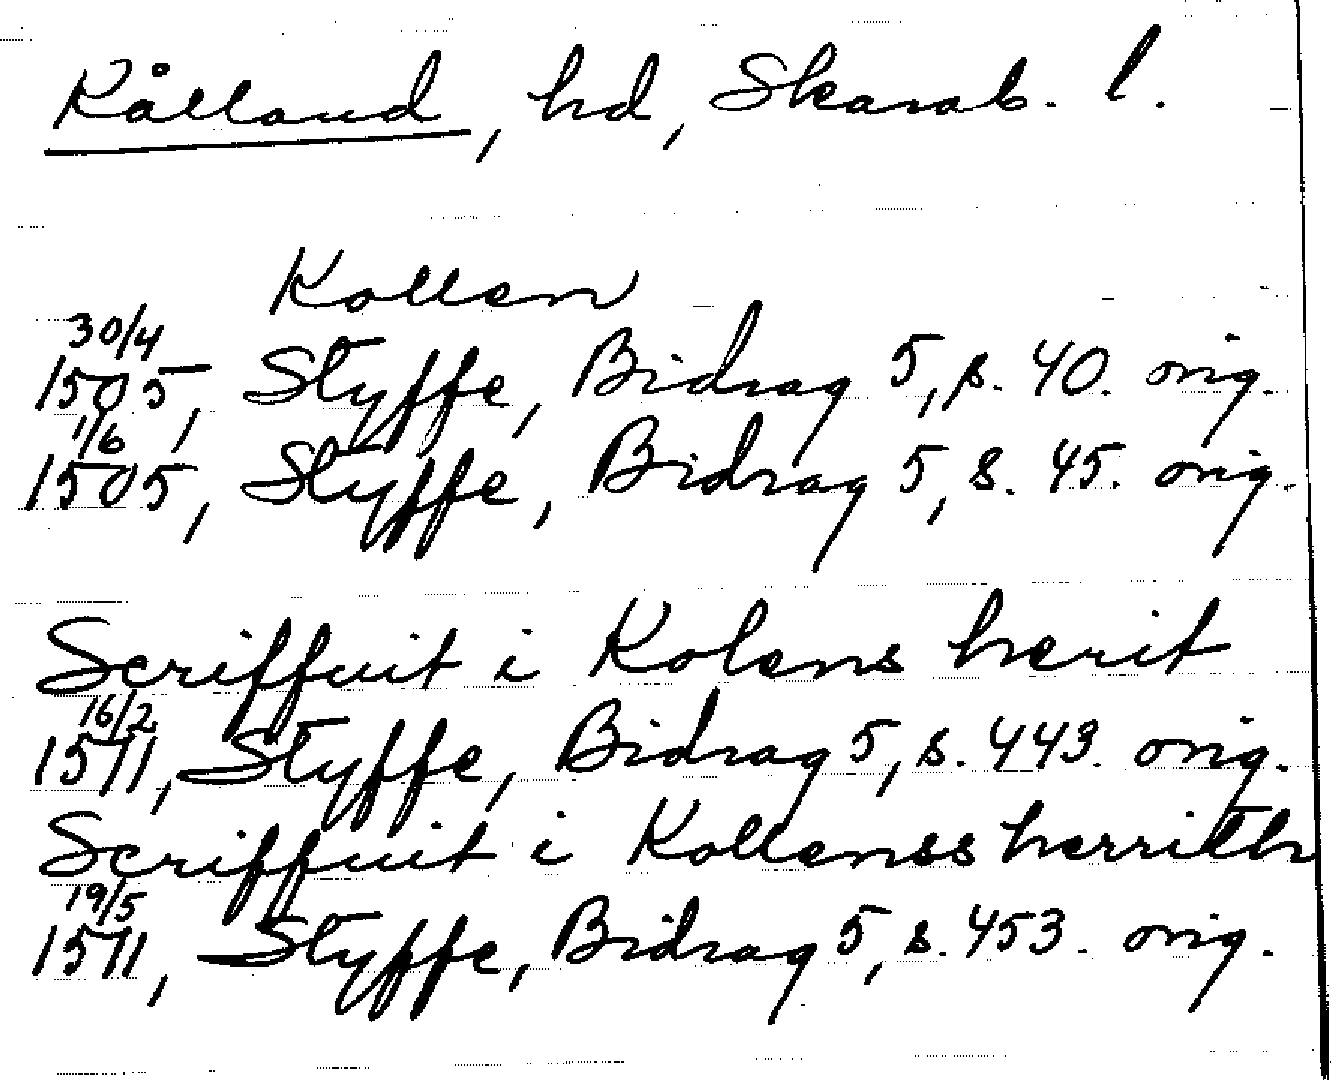 Kålland, hd, Skarab. l.
Kollen
30/4
1505, Styffe, Bidrag 5, s. 40. orig.
1/6
1505, Styffe, Bidrag 5, s. 45. orig.
Scriffuit i Kolens herit
16/2
1511, Styffe, Bidrag 5, s. 443. orig.
Scriffuit i Kollenss herrith
19/5
1511, Styffe, Bidrag 5, s. 453. orig.